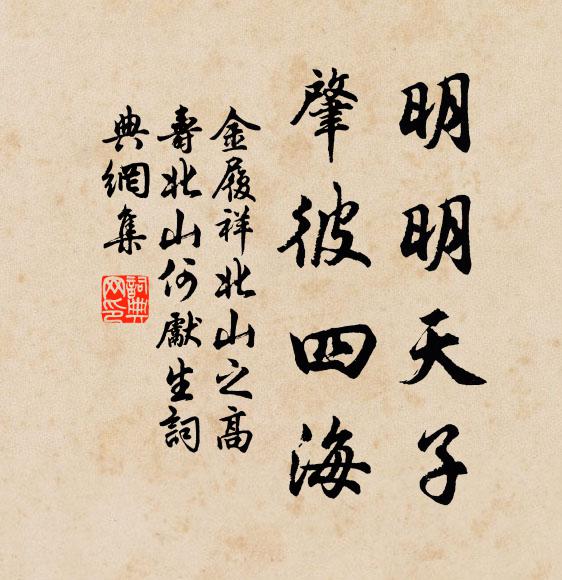 明明天子
肇彼四海
金履祥北山之高
壽北山何獻生詞
典網集
詞典
网印